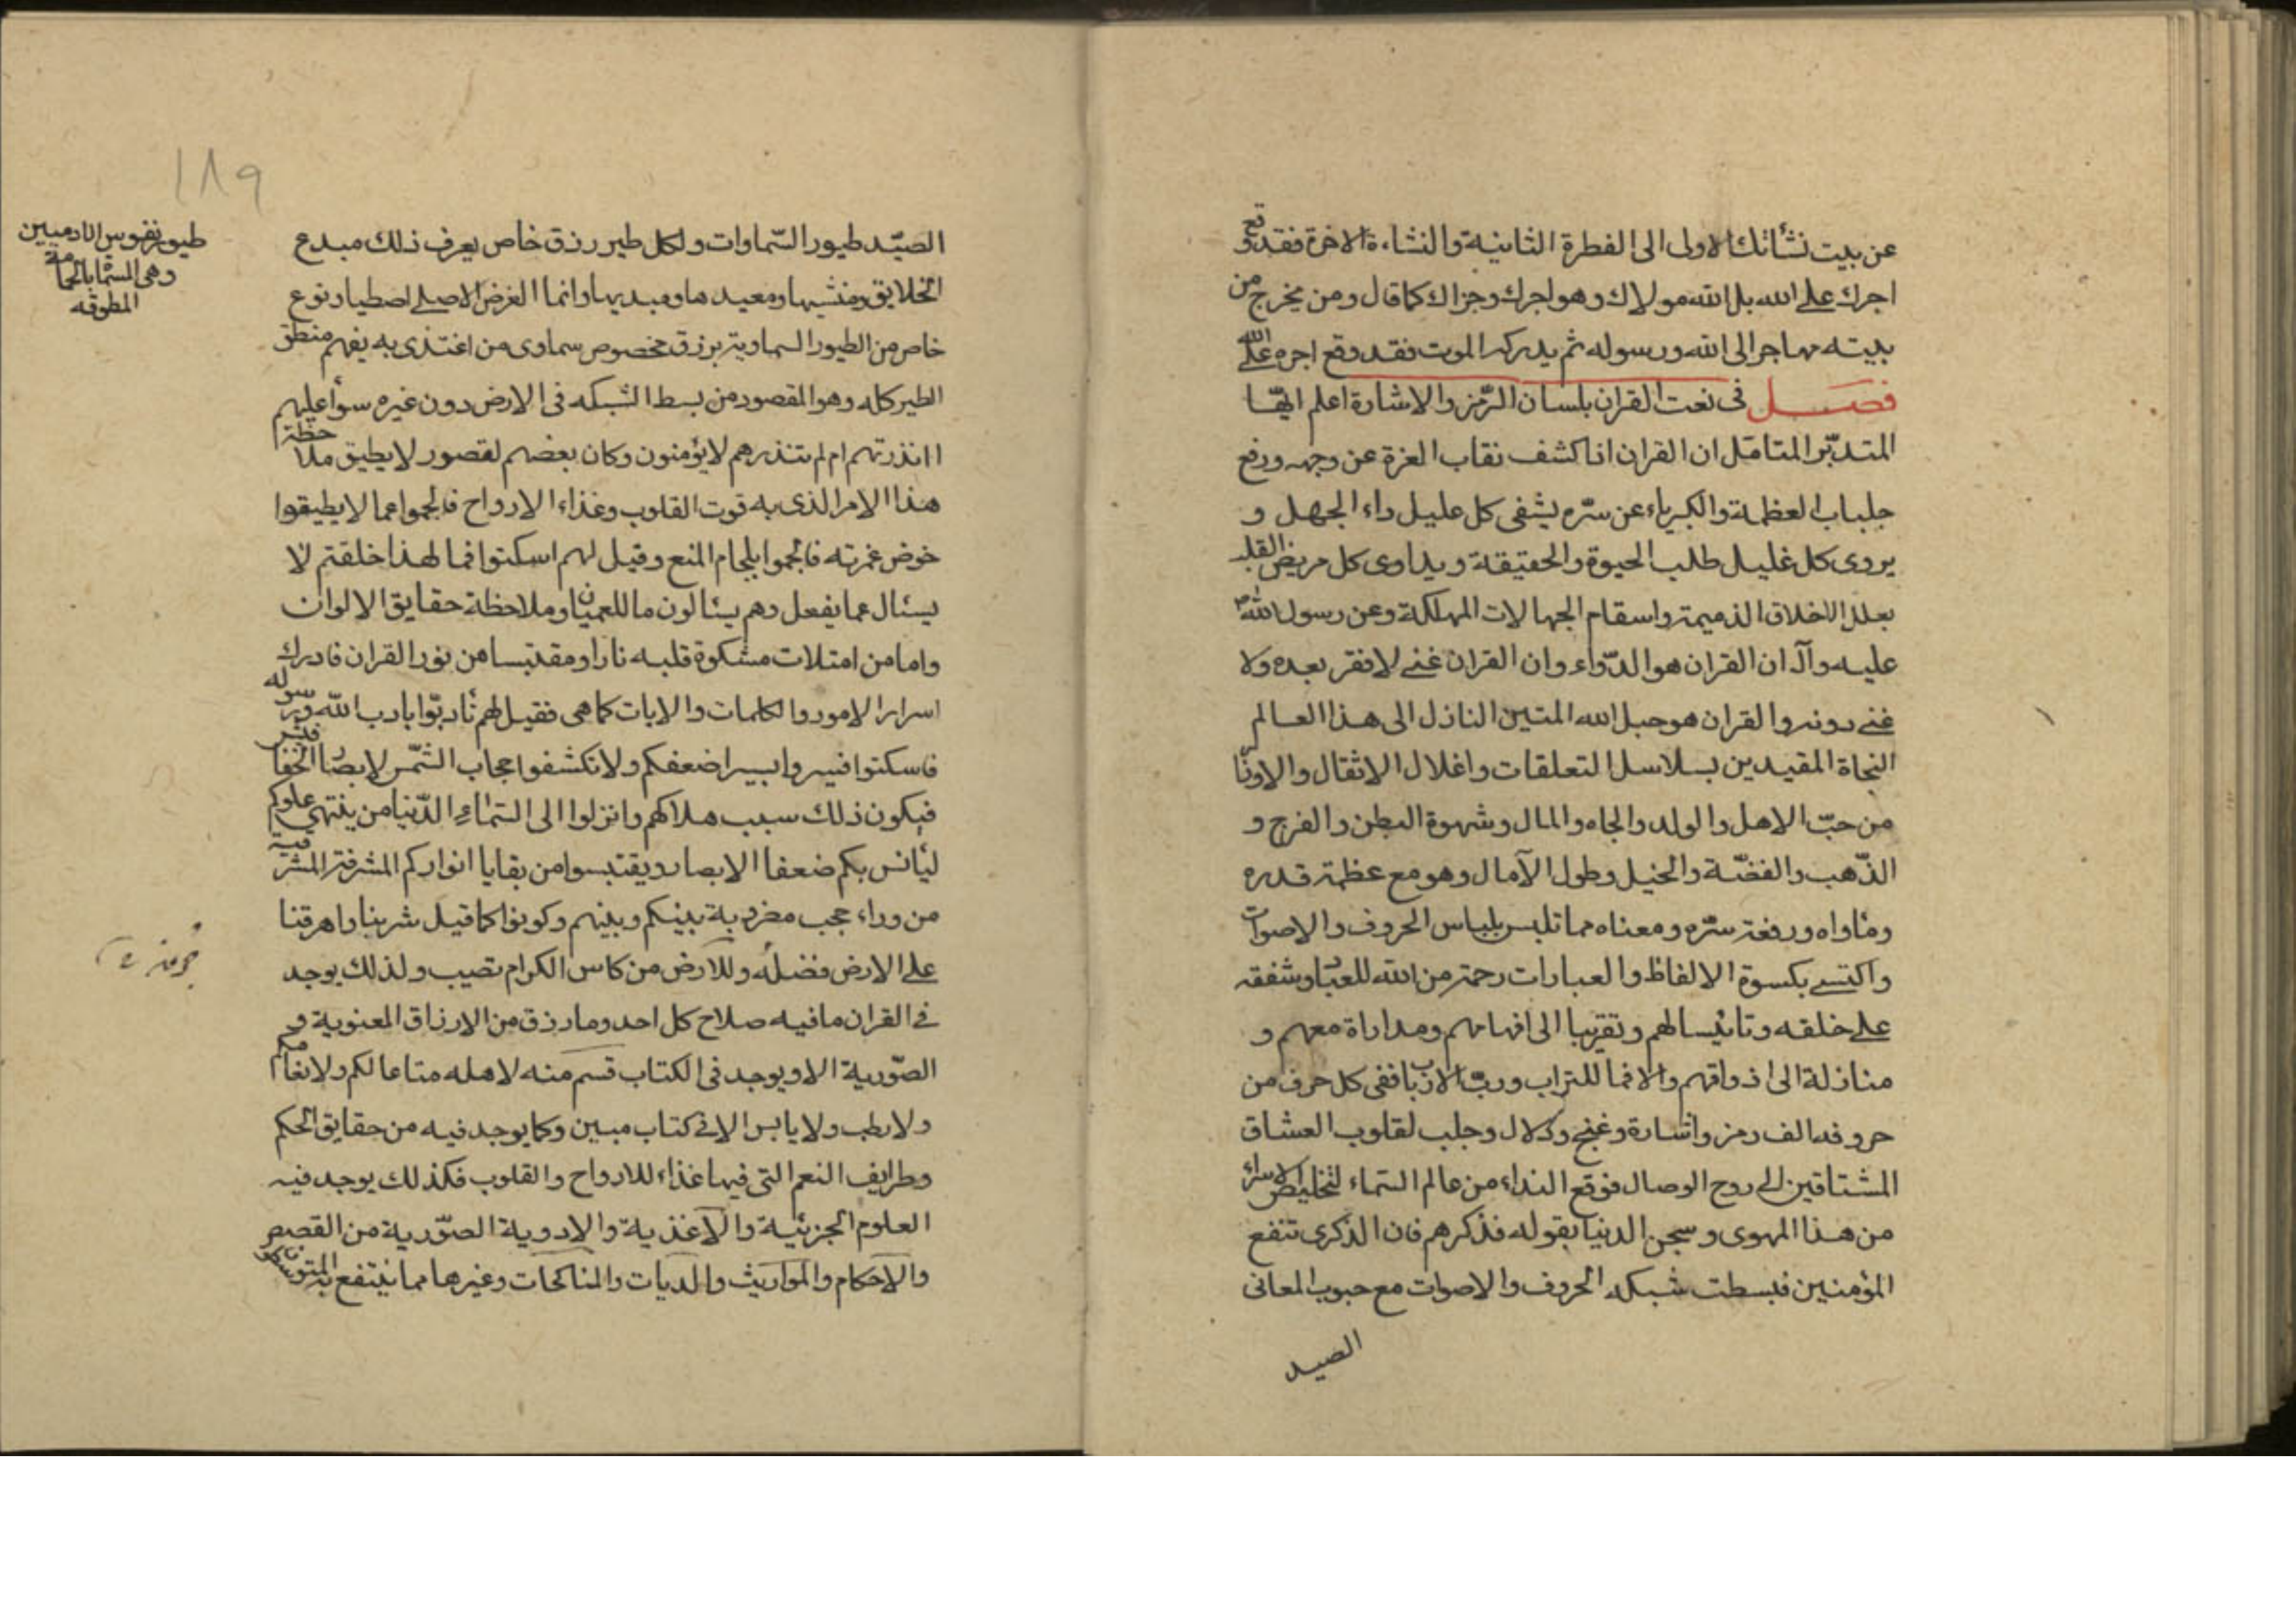 عن بيت نشأتك الاولى الى الفطرة الثانية والنشاءة الاخرة فقد وقع
اجرك على الله بل الله مولاك وهو اجرك وجزاك كما قال ومن يخرج من
بيته مهاجرا الى الله ورسوله ثم يدركه الموت فقد وقع اجره على الله
فصل فى نعت القران بلسان الرّمز والاشارة اعلم ايّها
المتدبّر المتامّل ان القران اذا كشف نقاب العزة عن وجهه ورفع
جلباب العظمة والكبرياء عن سرّه يشفى كل عليل داء الجهل و
يروى كل غليل طلب الحيوة والحقيقة ويداوى كل مريض القلب
بعلل الاخلاق الذميمة واسقام الجهالات المهلكة وعن رسول الله ص
عليه وآله ان القران هو الدّواء وان القران غنى لا فقر بعده ولا
غنى دونه والقران هو حبل الله المتين النازل الى هذا العالم
النجاة المقيدين بسلاسل التعلقات واغلال الاثقال والاوزا
من حبّ الاهل والولد والجاه والمال وشهوة البطن والفرج و
الذّهب والفضّة والخيل وطول الآمال وهو مع عظمة قدره
وماواه ورفعة سرّه ومعناه مما تلبس بلباس الحروف والاصوات
واكتسى بكسوة الالفاظ والعبارات رحمة من الله للعباد وشفقه
على خلقه وتانيسا لهم وتقريبا الى افهامهم ومداراة معهم و
منازلة الى اذواقهم والا فما للتراب ورب الارباب ففى كل حرف من
حروفه الف رمز واشارة وغنج ودلال وجلب لقلوب العشاق
المشتاقين الى روح الوصال فوقع النداء من عالم السماء لتخليص الاسراء
من هذا المهوى وسجن الدنيا بقوله فذكرهم فان الذكرى تنفع
المؤمنين فبسطت شبكه الحروف والاصوات مع حبوب المعانى
الصيد
١٨٩
الصيّد طيور السّماوات ولكل طير رزق خاص يعرف ذلك مبدع
الخلايق ومنشيها ومعيدها ومبديها وانما الغرض الاصلى اصطياد نوع
خاص من الطيور السماوية برزق مخصوص سماوى من اغتذى به يفهم منطق
الطير كله وهو المقصود من بسط الشبكه فى الارض دون غيره سوأ عليهم
اانذرتهم ام لم تنذرهم لا يؤمنون وكان بعضهم لقصور لا يطيق ملاحظة
هذا الامر الذى به قوت القلوب وغذاء الارواح فالجموا عما لا يطيقوا
خوض غمرته فالجموا بلجام المنع وقيل لهم اسكتوا فما لهذا خلقتم لا
يسئال عما يفعل وهم يسئالون ما للعميان وملاحظة حقايق الالوان
واما من امتلات مشكوة قلبه نارا ومقتبسا من نور القران فادرك
اسرار الامور والكلمات والايات كما هى فقيل لهم تأدبّوا بادب الله ورسوله
فاسكتوا فسيروا بسير اضعفكم ولا تكشفوا حجاب الشّمس لابصار الخفا فيش
فيكون ذلك سبب هلاكهم وانزلوا الى السّماء الدّنيا من ينتهى علوكم
ليأنس بكم ضعفا الابصار ويقتبسوا من بقايا انواركم المشرفة المشرقية
من وراء حجب مضروبة بينكم وبينهم وكونوا كما قيل شربنا واهرقنا
على الارض فضله وللارض من كاس الكرام نصيب ولذلك يوجد
فى القران ما فيه صلاح كل احد وما رزق من الارزاق المعنوية و
الصّورية الا ويوجد فى الكتاب قسم منه لاهله متاعا لكم ولانعامكم
ولا رطب ولا يابس الا فى كتاب مبين وكما يوجد فيه من حقايق الحكم
وطرايف النعم التى فيها غذاء للارواح والقلوب فكذلك يوجد فيه
العلوم الجزئية والاغذية والادوية الصّورية من القصص
والاحكام والمواريث والديات والمناكحات وغيرها مما ينتفع به المتوسطون
طيور نفوس الادميين
وهى المسمّا بالحمامة
المطوقه